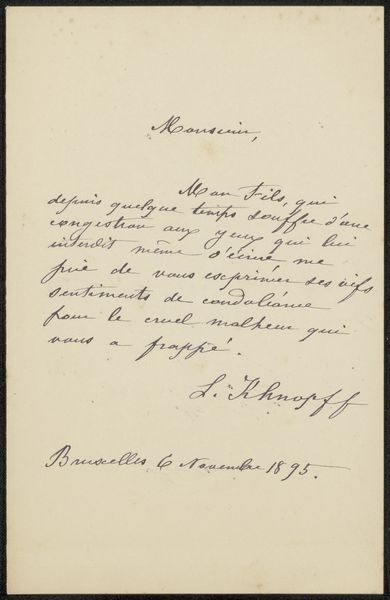 Monsieur,
Mon Fils, qui
depuis quelque temps souffre d'une
congestion aux yeux qui lui
interdit même d'écrire me
prie de vous exprimer ses vifs
sentiments de condoléance
pour le cruel malheur qui
vous a frappé.
L. Khnopff
Bruxelles 6 Novembre 1895.